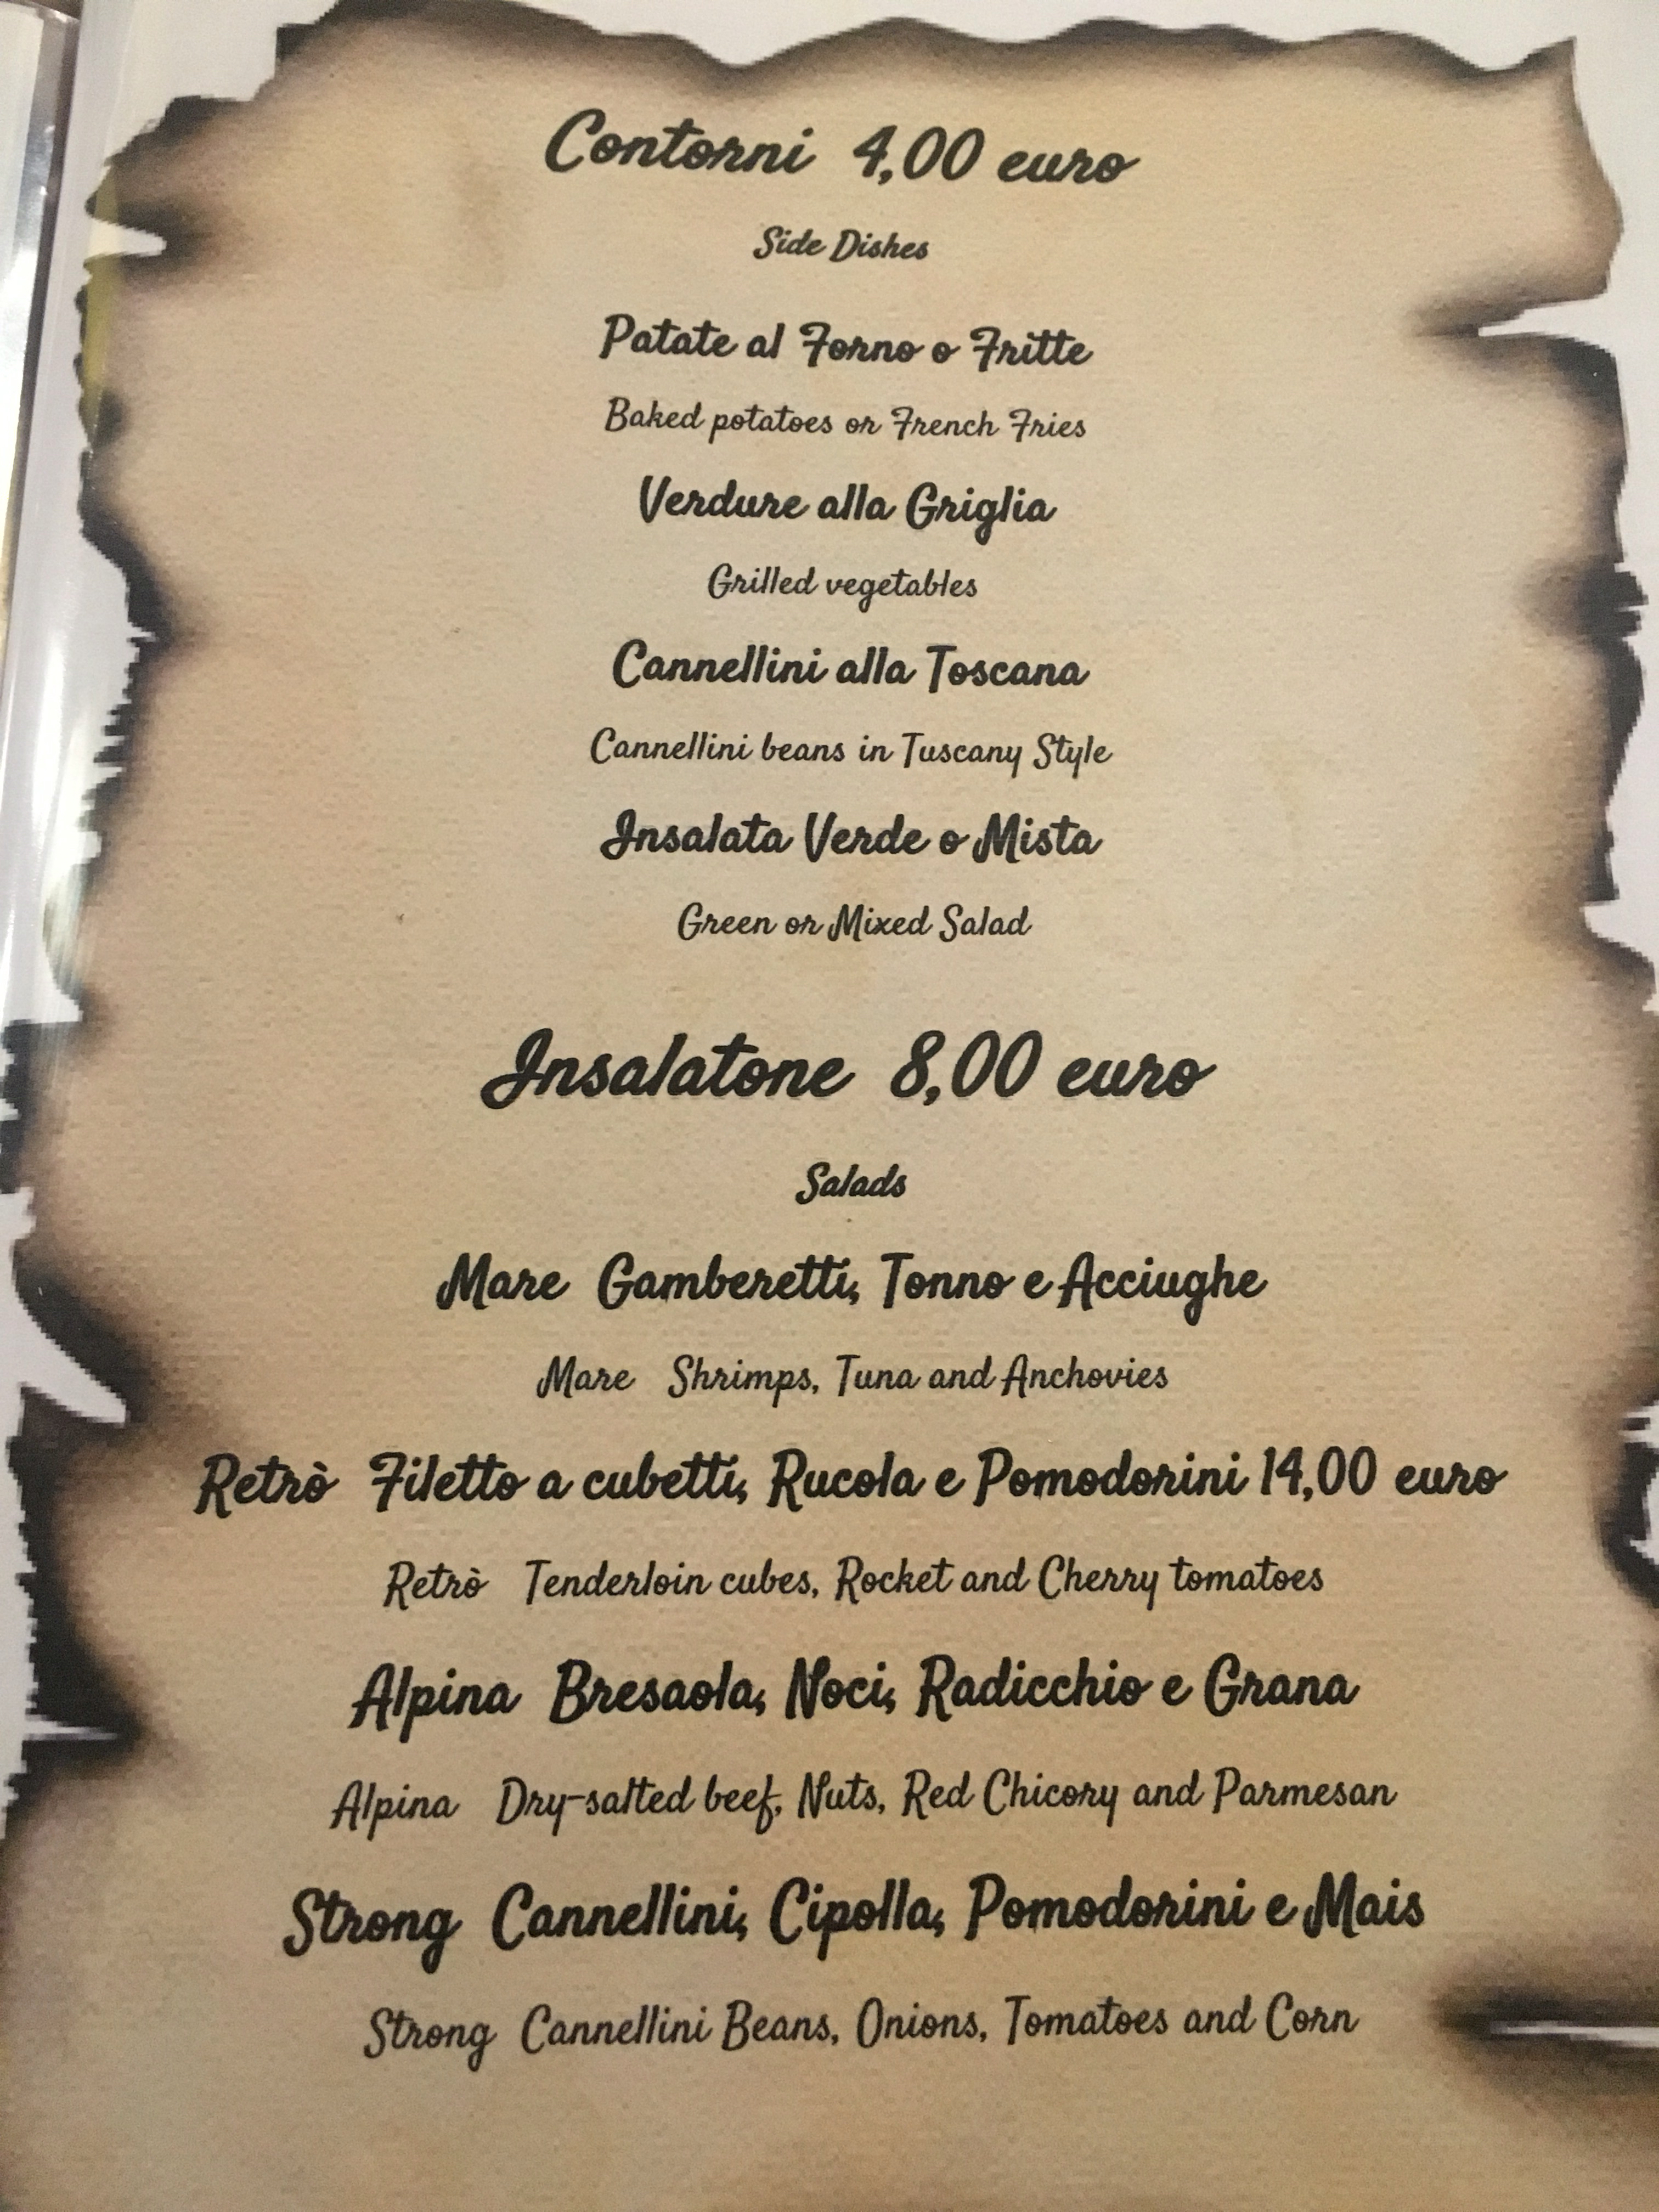 Contorni 4,00 euro
Side Dishes
Patate al Forno o Fritte
Baked potatoes or French Fries
Verdure alla Griglia
Grilled vegetables
Cannellini alla Toscana
Cannellini beans in Tuscany Style
Insalata Verde o Mista
Green or Mixed Salad
Insalatone 8,00 euro
Salads
Mare Gamberetti, Tonno e Acciughe
Mare Shrimps, Tuna and Anchovies
Retrò Filetto a cubetti, Rucola e Pomodorini 14,00 euro
Retrò Tenderloin cubes, Rocket and Cherry tomatoes
Alpina Bresaola, Noci, Radicchio e Grana
Alpina Dry-salted beef, Nuts, Red Chicory and Parmesan
Strong Cannellini, Cipolla, Pomodorini e Mais
Strong Cannellini Beans, Onions, Tomatoes and Corn